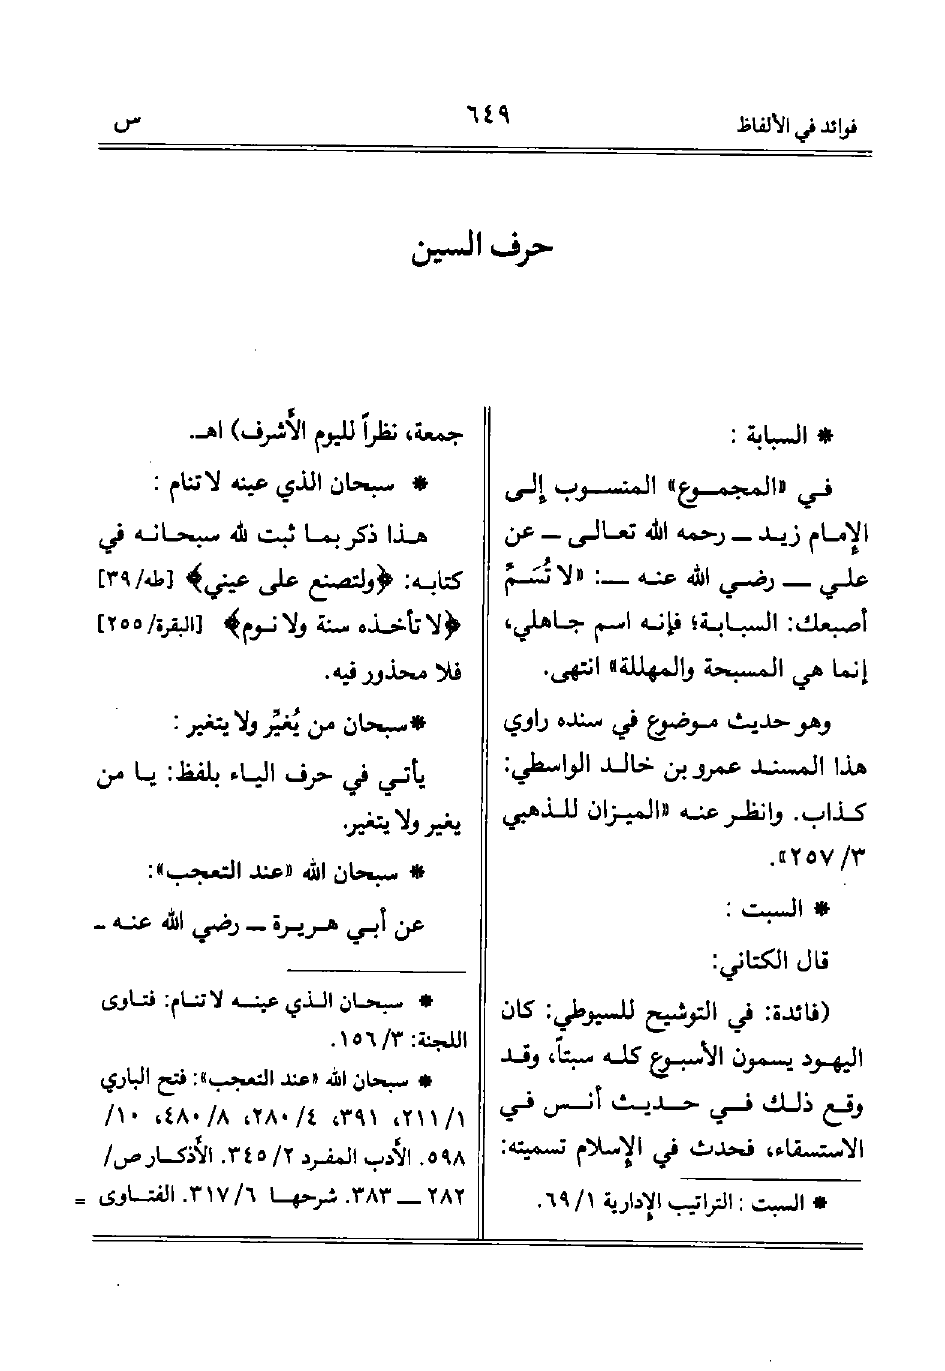 فوائد في الألفاظ
٦٤٩
س
حرف السين
* السبابة :
في «المجموع» المنسوب إلى
الإمام زيد ــ رحمه الله تعالى ــ عن
علي ــ رضي الله عنه ــ: «لا تُسَمِّ
أصبعك: السبابة؛ فإنه اسم جاهلي،
إنما هي المسبحة والمهللة» انتهى.
وهو حديث موضوع في سنده راوي
هذا المسند عمرو بن خالد الواسطي:
كذاب. وانظر عنه «الميزان للذهبي
٣/ ٢٥٧».
* السبت :
قال الكتاني:
(فائدة: في التوشيح للسيوطي: كان
اليهود يسمون الأسبوع كله سبتاً، وقد
وقع ذلك في حديث أنس في
الاستسقاء، فحدث في الإسلام تسميته:
* السبت : التراتيب الإدارية ١/ ٦٩.
جمعة، نظراً لليوم الأشرف) اهـ.
* سبحان الذي عينه لا تنام :
هذا ذكر بما ثبت لله سبحانه في
كتابه: ﴿ولتصنع على عيني﴾ [طه/ ٣٩]
﴿لا تأخذه سنة ولا نوم﴾ [البقرة/ ٢٥٥]
فلا محذور فيه.
*سبحان من يُغيِّر ولا يتغير :
يأتي في حرف الياء بلفظ: يا من
يغير ولا يتغير.
* سبحان الله «عند التعجب»:
عن أبي هريرة ــ رضي الله عنه ـ
* سبحان الذي عينه لا تنام: فتاوى
اللجنة: ٣/ ١٥٦.
* سبحان الله «عند التعجب»: فتح الباري
١/ ٢١١، ٣٩١، ٤/ ٢٨٠، ٨/ ٤٨٠، ١٠/
٥٩٨. الأدب المفرد ٢/ ٣٤٥. الأذكار ص/
٢٨٢ ــ ٣٨٣. شرحها ٦/ ٣١٧. الفتاوى =